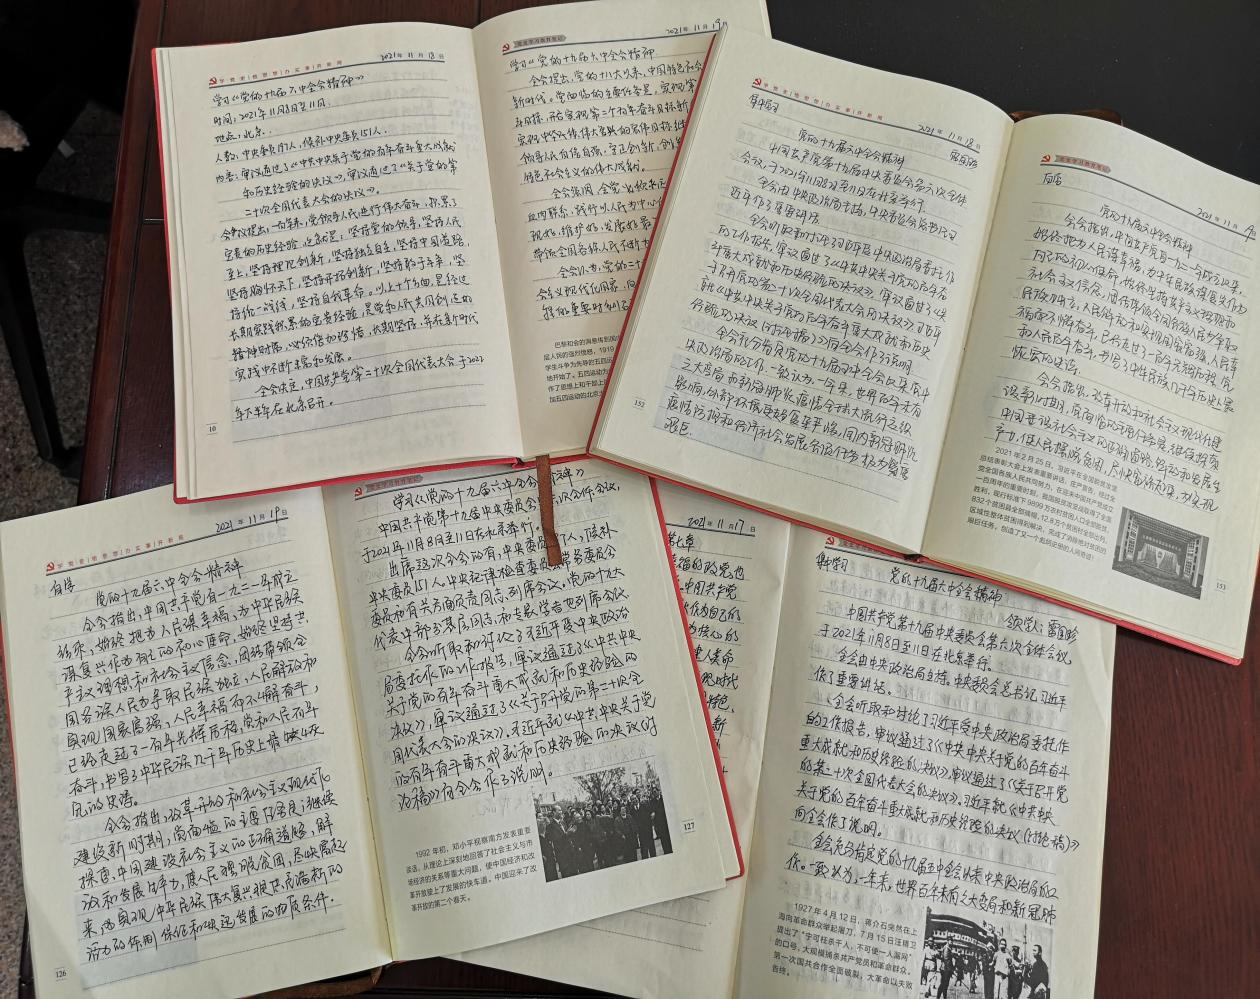 学党史 | 悟思想 | 办实事 | 开新局
2021年 11月 18日
学习《党的十九届六中全会精神》
时间：2021年11月8日至11日.
地点：北京.
人数：中央委员197人，候补中央委员151人.
内容：审议通过了《中共中央关于党的百年奋斗重大成就
和历史经验的决议》，审议通过了《关于党的第
二十次全国代表大会的决议》.
会议提出，一百年来，党领导人民进行伟大奋斗，积累了
宝贵的历史经验，这就是：坚持党的领导，坚持人民
至上，坚持理论创新，坚持独立自主，坚持中国道路，
坚持胸怀天下，坚持开拓创新，坚持敢于斗争，坚
持统一战线，坚持自我革命。以上十个方面，是经过
长期实践积累的宝贵经验，是党和人民共同创造的
精神财富，必须倍加珍惜、长期坚持，并在新时代
实践中不断丰富和发展。
全会决定，中国共产党第二十次全国代表大会于2022
年下半年在北京召开。
10
党史学习教育笔记
2021年 11月 19日
学习《党的十九届六中全会精神
全会提出，党的十八大以来，中国特色社会
新时代。党面临的主要任务是，实现第
斗目标，开启实现第二个百年奋斗目标新
实现中华民族伟大复兴的宏伟目标继
领导人民自信自强、守正创新，创
特色社会主义的伟大成就
全会强调，全党必须永远
血肉联系，践行以人民为中心
现好、维护好、发展好最
带领全国各族人民不断为
全会认为，党的二十
会主义现代化国家，向
巴黎和会的消息传到国
是人民的强烈愤怒，1919
学生斗争为先导的五四运
地开始了。五四运动为
作了思想上和干部上
加五四运动的北京
学党史 | 悟思想 | 办实事 | 开新局
2021年 11月 18日
集中学习
党的十九届六中全会精神
中国共产党第十九届中央委员会第六次全体
会议，于2021年11月8日至11日在北京举行
全会由中央政治局主持。中央委员会总书记习
近平作了重要讲话
全会听取和讨论了习近平受中央政治局委托作
的工作报告，审议通过了《中共中央关于党的百年奋
斗重大成就和历史经验的决议》，审议通过了《关
于召开党的第二十次全国代表大会的决议》。习近平
就《中共中央关于党的百年奋斗重大成就和历史
经验的决议(讨论稿)》向全会作了说明
全会充分肯定党的十九届五中全会以来中
央政治局的工作。一致认为，一年来，世界百年未有
之大变局和新冠肺炎疫情全球大流行交织
影响，外部环境更趋复杂严峻，国内新冠肺炎
疫情防控和经济社会发展各项任务极为繁重
艰巨.
152
党史学习教育笔记
2021年 11月
自学
党的十九届六中全会精神
全会指出，中国共产党自一九二一年成立以来，
始终把为人民谋幸福、为中华民族谋复兴作为
自己的初心使命，始终坚持共产主义理想和
社会主义信念，团结带领全国各族人民为争取
民族独立、人民解放和实现国家富强、人民幸
福而不懈奋斗，已经走过了一百年光辉历程。党
和人民百年奋斗，书写了中华民族几千年历史上最
恢宏的史诗；
全会指出，改革开放和社会主义现代化建
设新时期，党面临的主要任务是，继续探索
中国建设社会主义的正确道路，解放和发展生
产力，使人民摆脱贫困、尽快富裕起来，为实现
2021 年 2 月 25 日，习近平在全国脱贫攻坚
总结表彰大会上发表重要讲话，庄严宣告，经过全
党全国各族人民共同努力，在迎来中国共产党成立
一百周年的重要时刻，我国脱贫攻坚战取得了全面
胜利，现行标准下 9899 万农村贫困人口全部脱贫，
832 个贫困县全部摘帽，12.8 万个贫困村全部出列，
区域性整体贫困得到解决，完成了消除绝对贫困的
艰巨任务，创造了又一个彪炳史册的人间奇迹！
153
学党史 | 悟思想 | 办实事 | 开新局
2021年 11月 19日
自学
党的十九届六中全会精神
全会指出，中国共产党自一九二一年成立
以来，始终把为人民谋幸福、为中华民族
谋复兴作为自己的初心使命，始终坚持共
产主义理想和社会主义信念，团结带领全
国各族人民为争取民族独立、人民解放和
实现国家富强、人民幸福而不懈奋斗，
已经走过了一百年光辉历程。党和人民百年
奋斗，书写了中华民族几千年历史上最恢
宏的史诗。
全会指出，改革开放和社会主义现代化
建设新时期，党面临的主要任务是，继续
探索中国建设社会主义的正确道路，解
放和发展生产力，使人民摆脱贫困、尽快富裕起
来，为实现中华民族伟大复兴提供充满新的
活力的体制保证和快速发展的物质条件.
126
党史学习教育笔记
学习《党的十九届六中全会精神》
中国共产党第十九届中央委员会第六次全体会议，
于2021年11月8日至11日在北京举行。
出席这次全会的有，中央委员197人，候补
中央委员151人。中央纪律检查委员会常务委员会
委员和有关方面负责同志列席会议。党的十九大
代表中部分基层同志和专家学者也列席会议。
全会听取和讨论了习近平受中央政治
局委托作的工作报告，审议通过了《中共中央
关于党的百年奋斗重大成就和历史经验的
决议》，审议通过了《关于召开党的第二十次全
国代表大会的决议》。习近平就《中共中央关于党
的百年奋斗重大成就和历史经验的决议(讨
论稿)》向全会作了说明。
1992 年初，邓小平视察南方发表重要
谈话，从理论上深刻地回答了社会主义与市
场经济的关系等重大问题，使中国经济和改
革开放驶上了发展的快车道。中国迎来了改
革开放的第二个春天。
127
2021年 11月 17日
第七章
幸福的政党，也
中国共产党
党史学习教育笔记
集中学习
党的十九届六中全会精神
中国共产党第十九届中央委员会第六次全体会议，
于2021年11月8日至11日在北京举行。
全会由中央政治局主持。中央委员会总书记习近平
作了重要讲话。
全会听取和讨论了习近平受中央政治局委托作
的工作报告，审议通过了《中共中央关于党的百年奋斗
重大成就和历史经验的决议》，审议通过了《关于召开党
的第二十次全国代表大会的决议》。习近平就《中共中央
关于党的百年奋斗重大成就和历史经验的决议(讨论稿)》
向全会作了说明。
全会充分肯定党的十九届五中全会以来中央政治局的工
作。一致认为，一年来，世界百年未有之大变局和新冠肺
1927 年 4 月 12 日，蒋介石突然在上
海向革命群众举起屠刀，7 月 15 日汪精卫
提出了“宁可枉杀千人，不可使一人漏网”
的口号，大规模捕杀共产党员和革命群众。
第一次国共合作全面破裂，大革命以失败
告终。